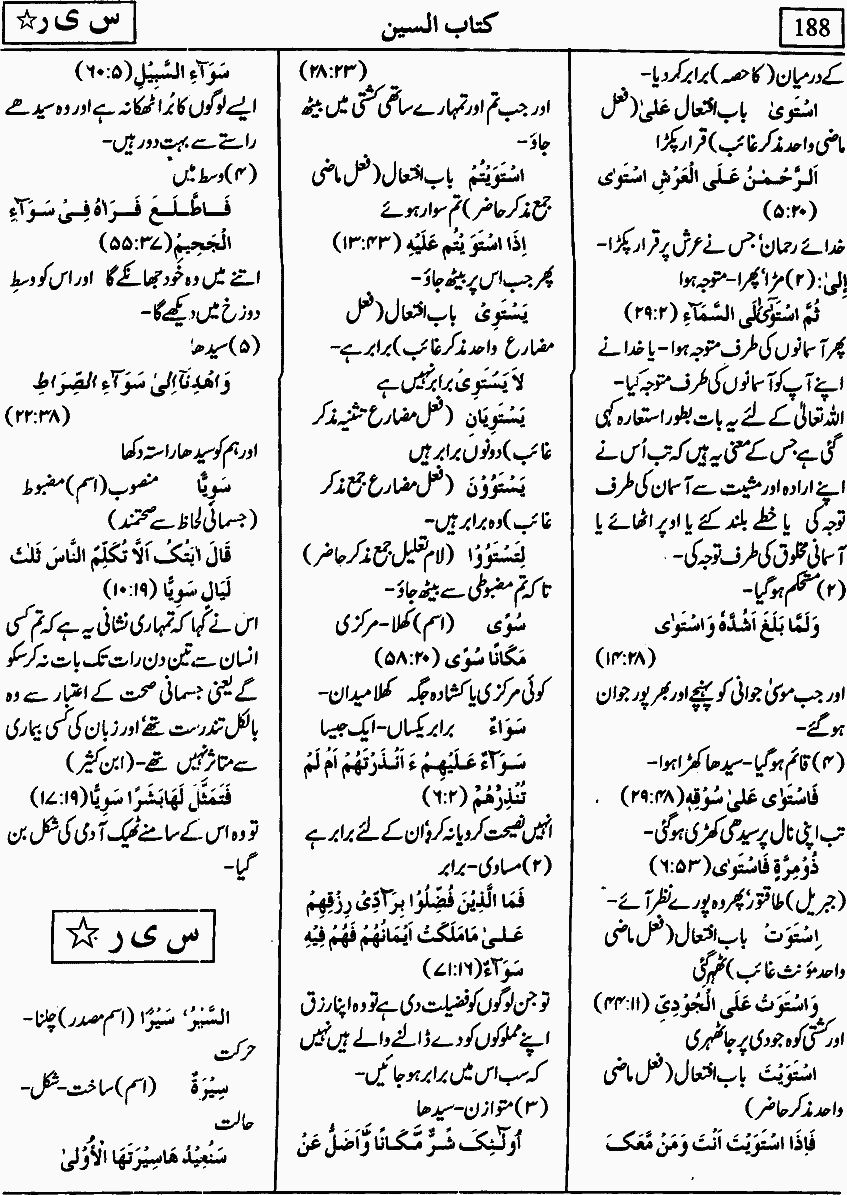 188
کتاب السین
س ی ر ☆
کے درمیان (کا حصہ) برابر کر دیا-
اسْتَوىٰ باب افتعال علیٰ (فعل
ماضی واحد مذکر غائب) قرار پکڑا
اَلرَّحْمٰنُ عَلَى الْعَرْشِ اسْتَوٰى
(۵:۲۰)
خدائے رحمان، جس نے عرش پر قرار پکڑا-
اِلیٰ: (۲) مڑا، پھرا- متوجہ ہوا
ثُمَّ اسْتَوٰٓى اِلَى السَّمَآءِ (۲۹:۲)
پھر آسمانوں کی طرف متوجہ ہوا- یا خدا نے
اپنے آپ کو آسمانوں کی طرف متوجہ کیا-
اللہ تعالیٰ کے لئے یہ بات بطور استعارہ کہی
گئی ہے جس کے معنی یہ ہیں کہ تب اُس نے
اپنے ارادہ اور مشیت سے آسمان کی طرف
توجہ کی یا خطے بلند کئے یا اوپر اٹھائے یا
آسمانی مخلوق کی طرف توجہ کی-
(۲) مستحکم ہو گیا-
وَلَمَّا بَلَغَ اَشُدَّهٗ وَاسْتَوٰى
(۱۴:۲۸)
اور جب موسیٰ جوانی کو پہنچے اور بھر پور جوان
ہو گئے-
(۴) قائم ہو گیا- سیدھا کھڑا ہوا-
فَاسْتَوٰى عَلىٰ سُوْقِهٖ (۲۹:۴۸)
تب اپنی نال پر سیدھی کھڑی ہو گئی-
ذُوْمِرَّةٍ فَاسْتَوٰى (۶:۵۳)
(جبریل) طاقتور، پھر وہ پورے نظر آئے-
اِسْتَوَتْ باب افتعال (فعل ماضی
واحد مؤنث غائب) ٹھہر گئی
وَاسْتَوَتْ عَلَى الْجُوْدِيِّ (۴۴:۱۱)
اور کشتی کوہ جودی پر جا ٹھہری
اسْتَوَيْتَ باب افتعال (فعل ماضی
واحد مذکر حاضر)
فَاِذَا اسْتَوَيْتَ اَنْتَ وَمَنْ مَّعَكَ
(۲۸:۲۳)
اور جب تم اور تمہارے ساتھی کشتی میں بیٹھ
جاؤ-
اسْتَوَيْتُمْ باب افتعال (فعل ماضی
جمع مذکر حاضر) تم سوار ہوئے
اِذَا اسْتَوَيْتُمْ عَلَيْهِ (۱۳:۴۳)
پھر جب اس پر بیٹھ جاؤ-
يَسْتَوِىْ باب افتعال (فعل
مضارع واحد مذکر غائب) برابر ہے-
لَا يَسْتَوِىْ برابر نہیں ہے
يَسْتَوِيَانِ (فعل مضارع تثنیہ مذکر
غائب) دونوں برابر ہیں
يَسْتَوُوْنَ (فعل مضارع جمع مذکر
غائب) وہ برابر ہیں-
لِتَسْتَوُوْا (لام تعلیل جمع مذکر حاضر)
تاکہ تم مضبوطی سے بیٹھ جاؤ-
سُوًى (اسم) کھلا- مرکزی
مَكَانًا سُوًى (۵۸:۲۰)
کوئی مرکزی یا کشادہ جگہ کھلا میدان-
سَوَاءٌ برابر یکساں- ایک جیسا
سَوَآءٌ عَلَيْهِمْ ءَاَنْذَرْتَهُمْ اَمْ لَمْ
تُنْذِرْهُمْ (۶:۲)
انہیں نصیحت کرو یا نہ کرو، ان کے لئے برابر ہے
(۲) مساوی- برابر
فَمَا الَّذِيْنَ فُضِّلُوْا بِرَآدِّىْ رِزْقِهِمْ
عَلىٰ مَامَلَكَتْ اَيْمَانُهُمْ فَهُمْ فِيْهِ
سَوَآءٌ (۷۱:۱۶)
تو جن لوگوں کو فضیلت دی ہے تو وہ اپنا رزق
اپنے مملوکوں کو دے ڈالنے والے ہیں نہیں
کہ سب اس میں برابر ہو جائیں-
(۳) متوازن- سیدھا
اُولٰٓئِكَ شَرٌّ مَّكَانًا وَّاَضَلُّ عَنْ
سَوَآءِ السَّبِيْلِ (۶۰:۵)
ایسے لوگوں کا برا ٹھکانہ ہے اور وہ سیدھے
راستے سے بہت دور ہیں-
(۴) وسط میں
فَاطَّلَعَ فَرَاٰهُ فِىْ سَوَآءِ
الْجَحِيْمِ (۵۵:۳۷)
اتنے میں وہ خود جھانکے گا اور اس کو وسط
دوزخ میں دیکھے گا-
(۵) سیدھا
وَاهْدِنَآ اِلىٰ سَوَآءِ الصِّرَاطِ
(۲۲:۳۸)
اور ہم کو سیدھا راستہ دکھا
سَوِيًّا منصوب (اسم) مضبوط
(جسمانی لحاظ سے صحتمند)
قَالَ اٰيَتُكَ اَلَّا تُكَلِّمَ النَّاسَ ثَلٰثَ
لَيَالٍ سَوِيًّا (۱۰:۱۹)
اس نے کہا کہ تمہاری نشانی یہ ہے کہ تم کسی
انسان سے تین دن رات تک بات نہ کر سکو
گے یعنی جسمانی صحت کے اعتبار سے وہ
بالکل تندرست تھے اور زبان کی کسی بیماری
سے متاثر نہیں تھے- (ابن کثیر)
فَتَمَثَّلَ لَهَا بَشَرًا سَوِيًّا (۱۷:۱۹)
تو وہ اس کے سامنے ٹھیک آدمی کی شکل بن
گیا-
س ی ر ☆
السَّيْرُ، سَيْرًا (اسم مصدر) چلنا-
حرکت
سِيْرَةٌ (اسم) ساخت- شکل-
حالت
سَنُعِيْدُهَا سِيْرَتَهَا الْاُوْلىٰ